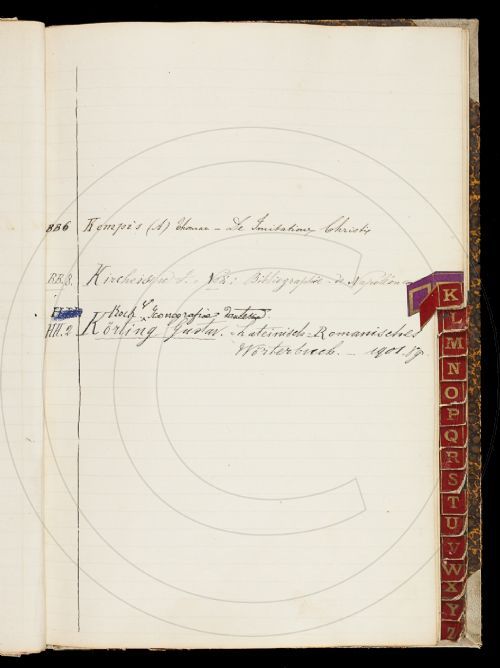 BB6 Kempis (A) Thomas – De Imitatione Christi
BB.8. Bibliographie de Napoléon
Koch Iconografia dantesca
HH.2 Körting Gustav. Lateinisch-Romanisches
Wörterbuch. – 1901.
K
L
M
N
O
P
Q
R
S
T
U
V
W
X
Y
Z